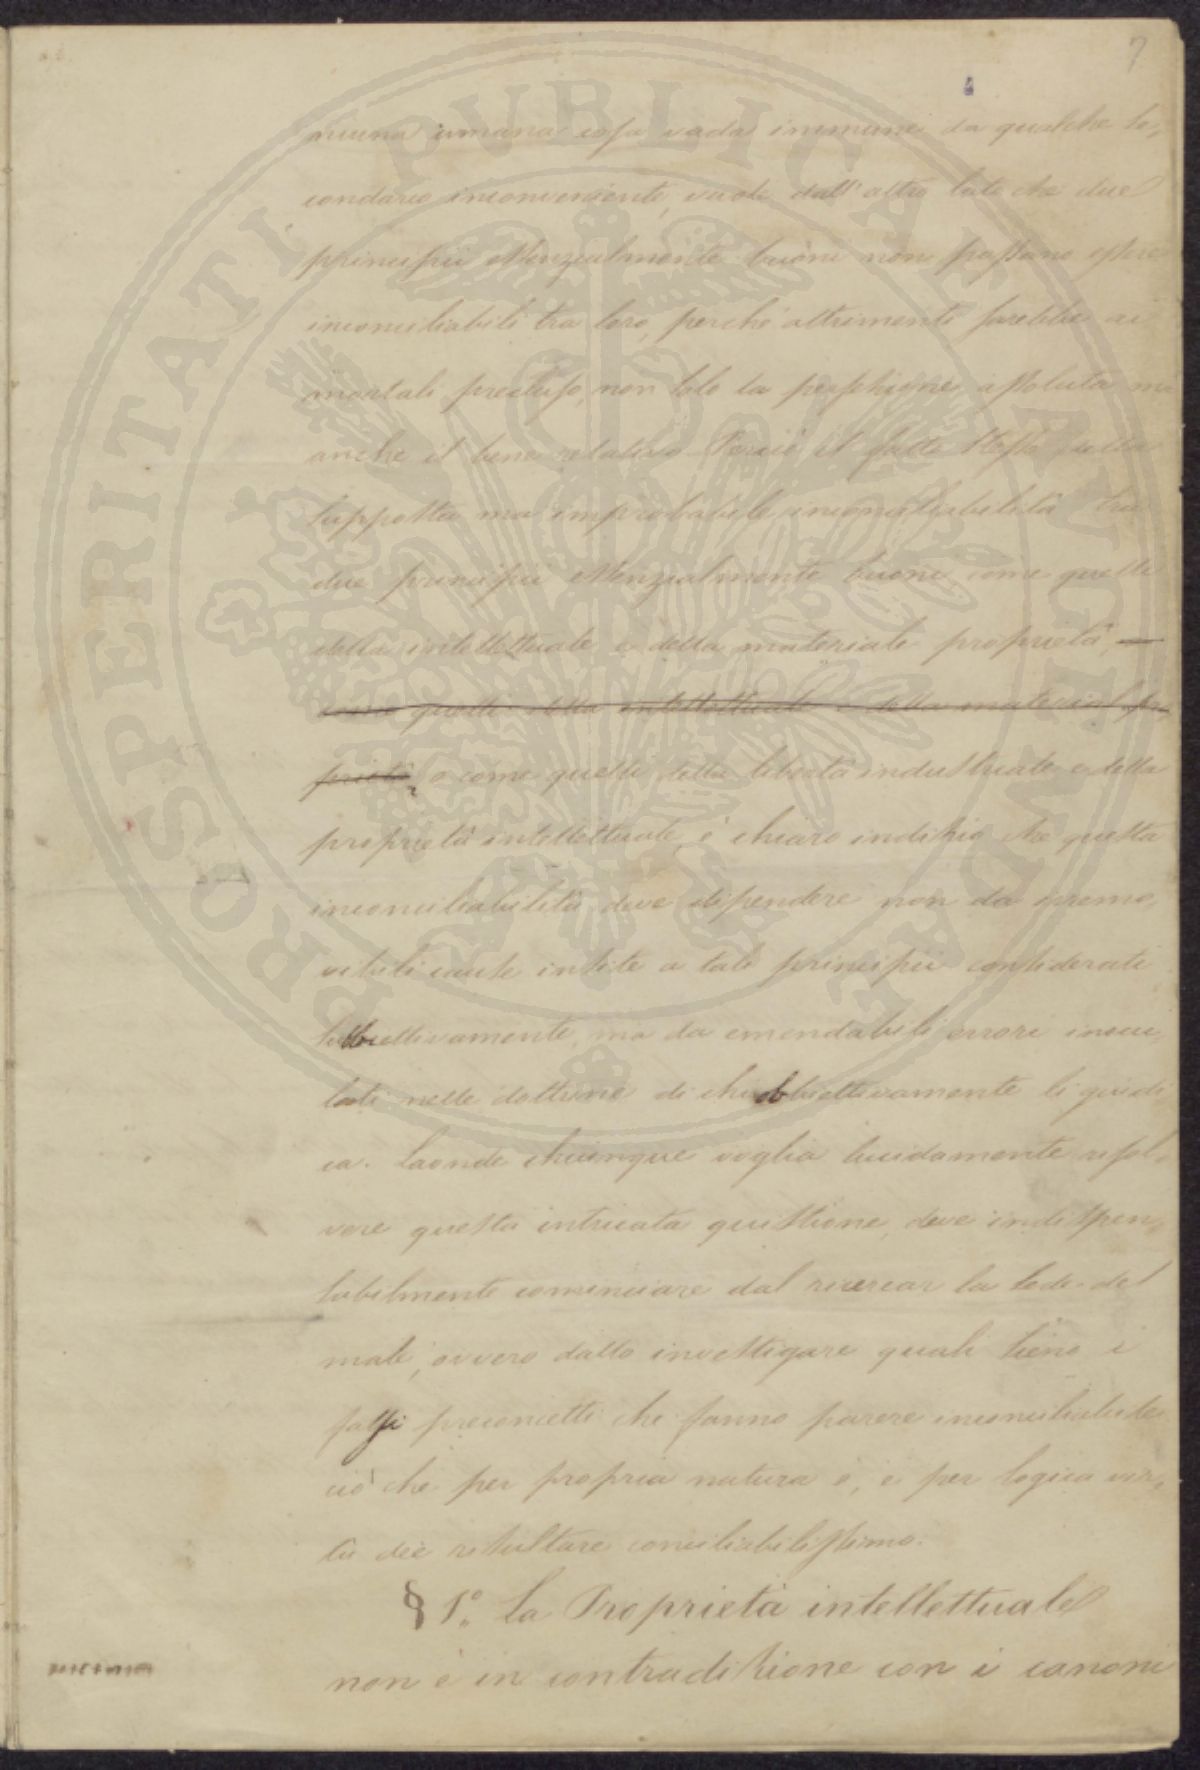 7
niuna umana cosa vada immune da qualche se,
condario inconveniente, vuole dall'altro lato che due
principii essenzialmente buoni non possano essere
inconciliabili tra loro, perchè altrimenti sarebbe ai
mortali precluso, non solo la perfezione assoluta ma
anche il bene relativo. Perciò il fatto stesso della
supposta ma improbabile inconciliabilità tra
due principii essenzialmente buoni, come quelli
della intellettuale e della materiale proprietà,
come quelli della intellettuale e della material pro
prietà, o come quelli della libertà industriale e della
proprietà intellettuale, è chiaro indizio che questa
inconciliabilità deve dipendere non da inremo,
vibili cause insite a tali principii considerati
subbiettivamente, ma da emendabili errori inocu,
lati nelle dottrine di chi obbiettivamente li giudi,
ca. Laonde chiunque voglia lucidamente risol,
vere questa intricata quistione, deve indispen,
sabilmente cominciare dal ricercar la sede del
male, ovvero dallo investigare quali sieno i
falsi preconcetti che fanno parere inconciliabile
ciò che per propria natura è, e per logica vir,
tù dee risultare conciliabilissimo.
§ 1.º La Proprietà intellettuale
non è in contradizione con i canoni
PROSPERITATI PVBLICAE AVGENDAE